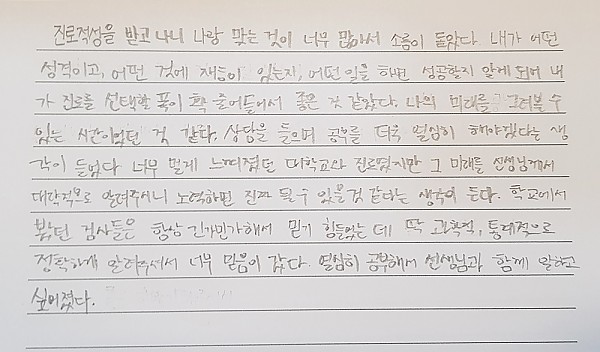 진로적성을 받고 나니 나랑 맞는 것이 너무 많아서 소름이 돋았다. 내가 어떤
성격이고, 어떤 것에 재능이 있는지, 어떤 일을 하면 성공할지 알게 되어 내
가 진로를 선택할 폭이 확 줄어들어서 좋은 것 같았다. 나의 미래를 그려볼 수
있는 시간이었던 것 같다. 상담을 들으며 공부를 더욱 열심히 해야겠다는 생
각이 들었다. 너무 멀게 느껴졌던 대학교와 진로였지만 그 미래를 선생님께서
대략적으로 알려주시니 노력하면 진짜 될 수 있을것 같다라는 생각이 든다. 학교에서
봤던 검사들은 항상 긴가민가해서 믿기 힘들었는데 딱 과학적, 통계적으로
정확하게 알려주셔서 너무 믿음이 갔다. 열심히 공부해서 선생님과 함께 일하고
싶어졌다.